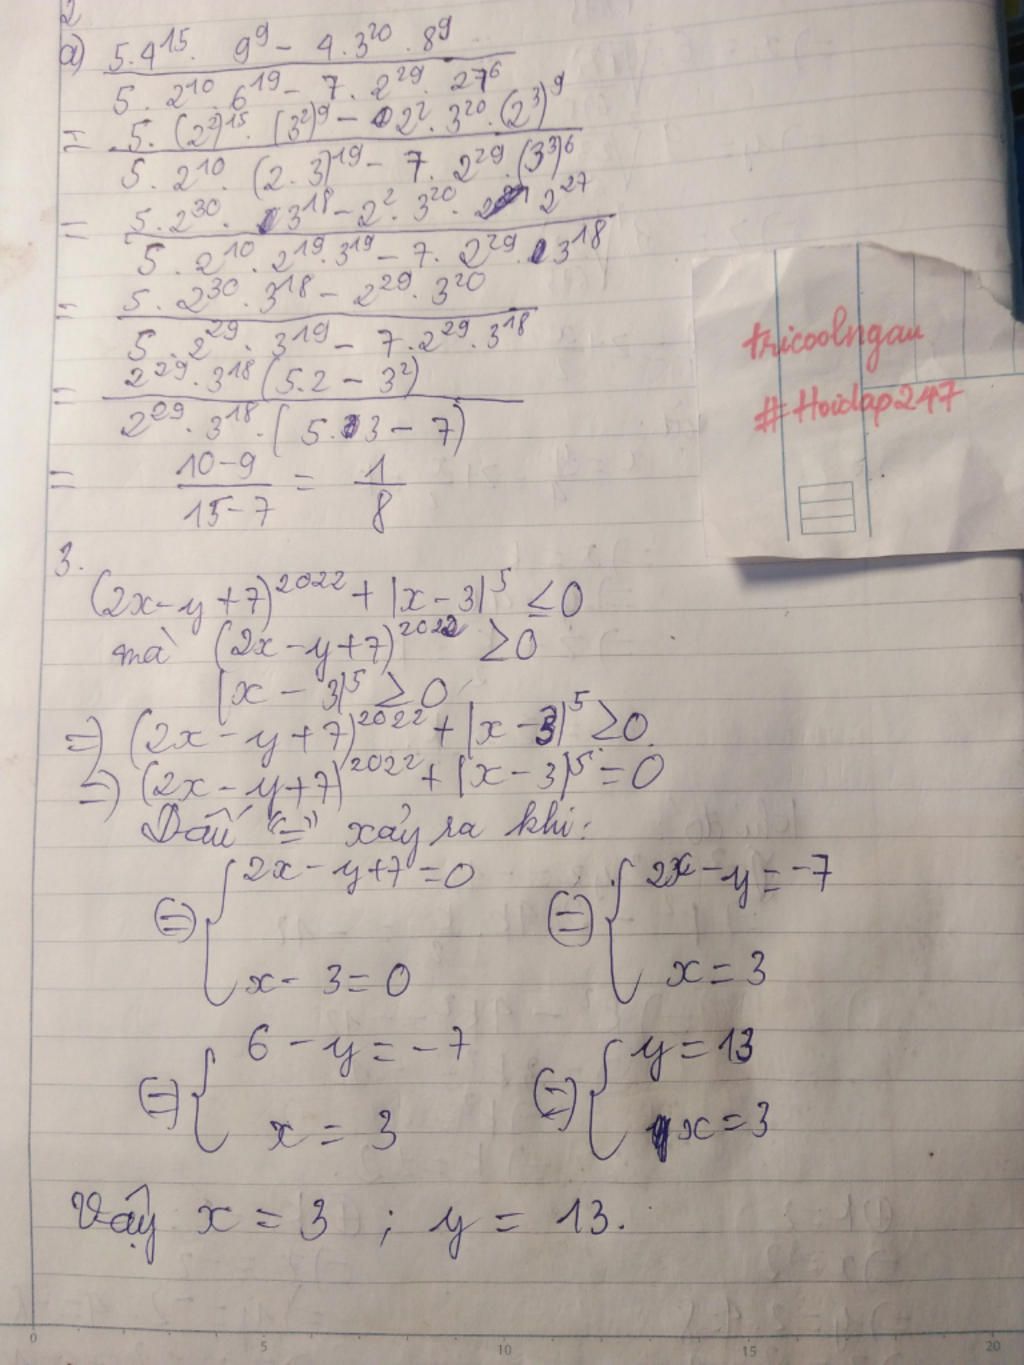 2
a) 5.4^15 . 9^9 - 4.3^20 . 8^9
5 . 2^10 . 6^19 - 7 . 2^29 . 27^6
= 5. (2^2)^15 . (3^2)^9 - 2^2 . 3^20 . (2^3)^9
5 . 2^10 . (2.3)^19 - 7 . 2^29 . (3^3)^6
= 5.2^30 . 3^18 - 2^2 . 3^20 . 2^27
5 . 2^10 . 2^19 . 3^19 - 7 . 2^29 . 3^18
= 5 . 2^30 . 3^18 - 2^29 . 3^20
5 . 2^29 . 3^19 - 7.2^29 . 3^18
= 2^29 . 3^18 (5.2 - 3^2)
2^29 . 3^18 . (5.3 - 7)
= 10-9 = 1
15-7 8
tricoolngau
#Hoidap247
3.
(2x-y+7)^2022 + |x-3|^5 ≤ 0
mà (2x-y+7)^2022 ≥ 0
|x - 3|^5 ≥ 0
=> (2x-y+7)^2022 + |x-3|^5 ≥ 0.
=> (2x-y+7)^2022 + |x-3|^5 = 0
Dấu "=" xảy ra khi:
(=) { 2x-y+7=0 (=) { 2x-y=-7
x-3=0 x=3
(=) { 6-y=-7 (=) { y=13
x=3 x=3
Vậy x = 3 ; y = 13.
0 5 10 15 20